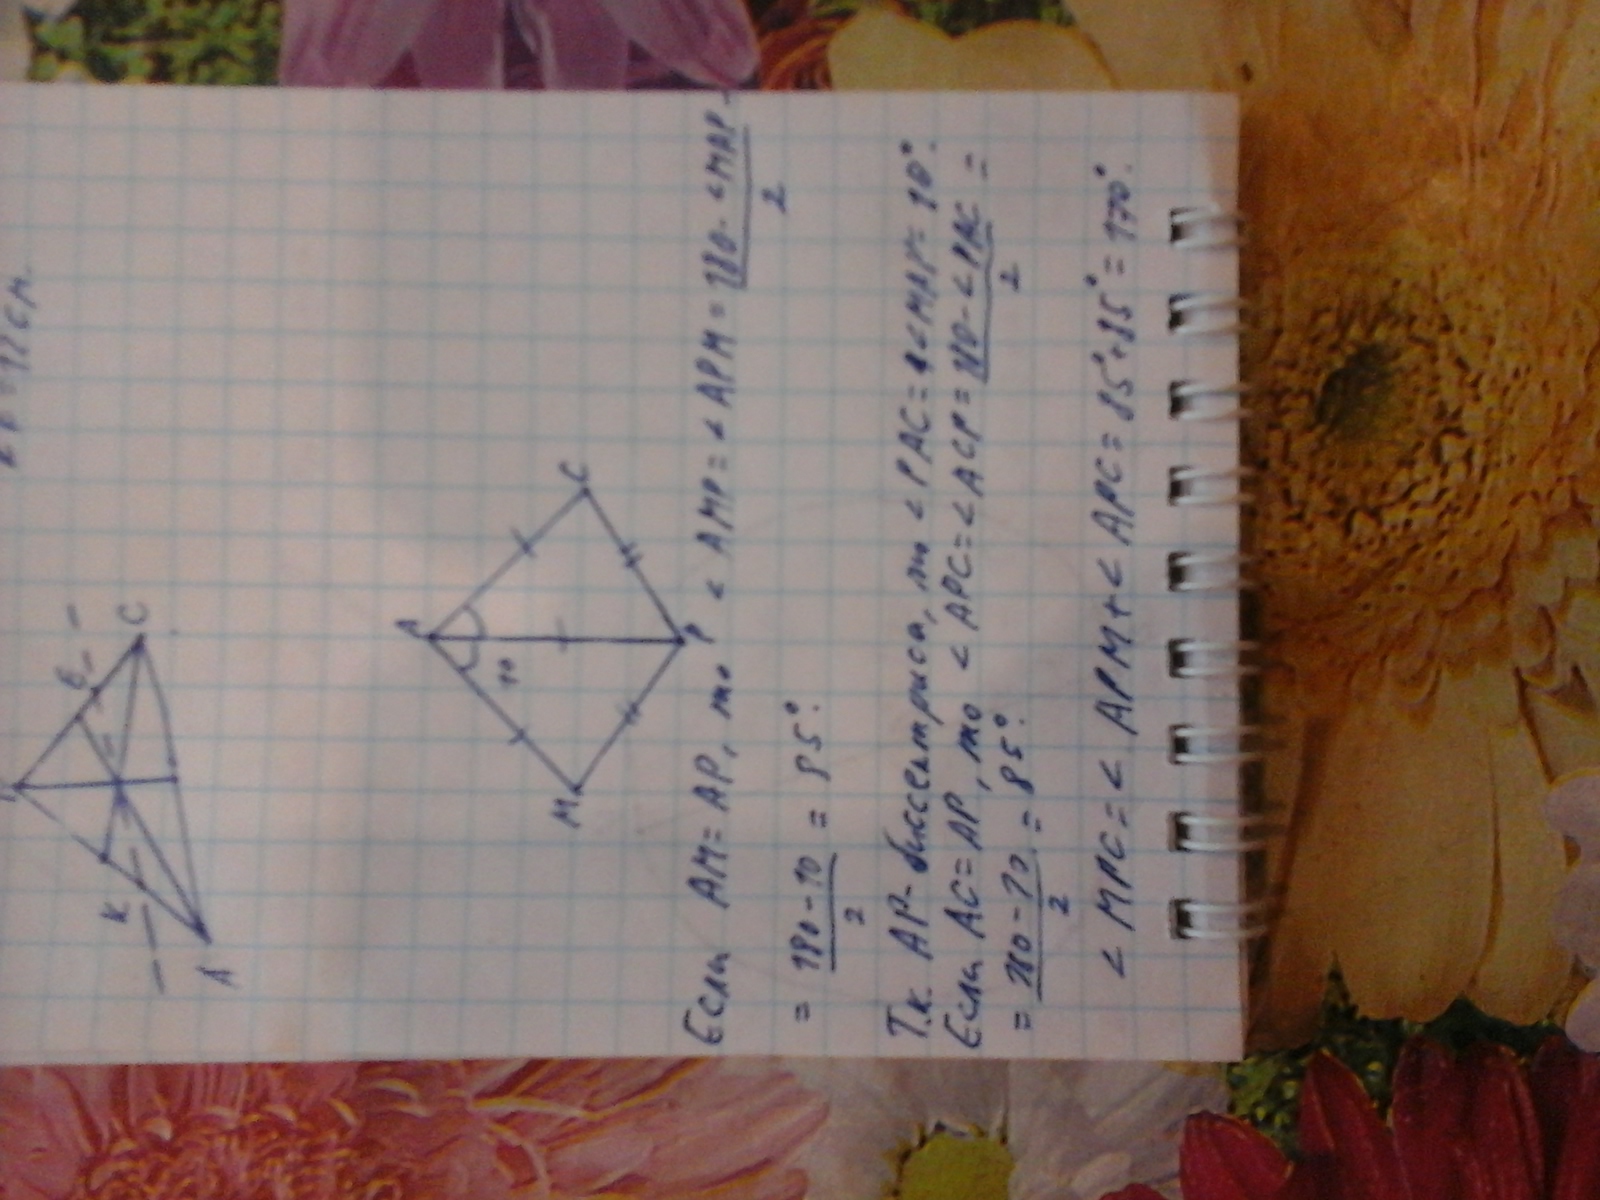 = 12 см.
B
C
K
A
A
C
10
M
P
Если AM = AP, то < AMP = < APM = 180 - <MAP
2
= 180 - 10 = 85°.
2
Т.к. AP - биссектриса, то < PAC = <MAP = 10°.
Если AC = AP, то < APC = < ACP = 180 - < PAC =
2
= 180 - 10 = 85°.
2
< MPC = < APM + < APC = 85° + 85° = 170°.